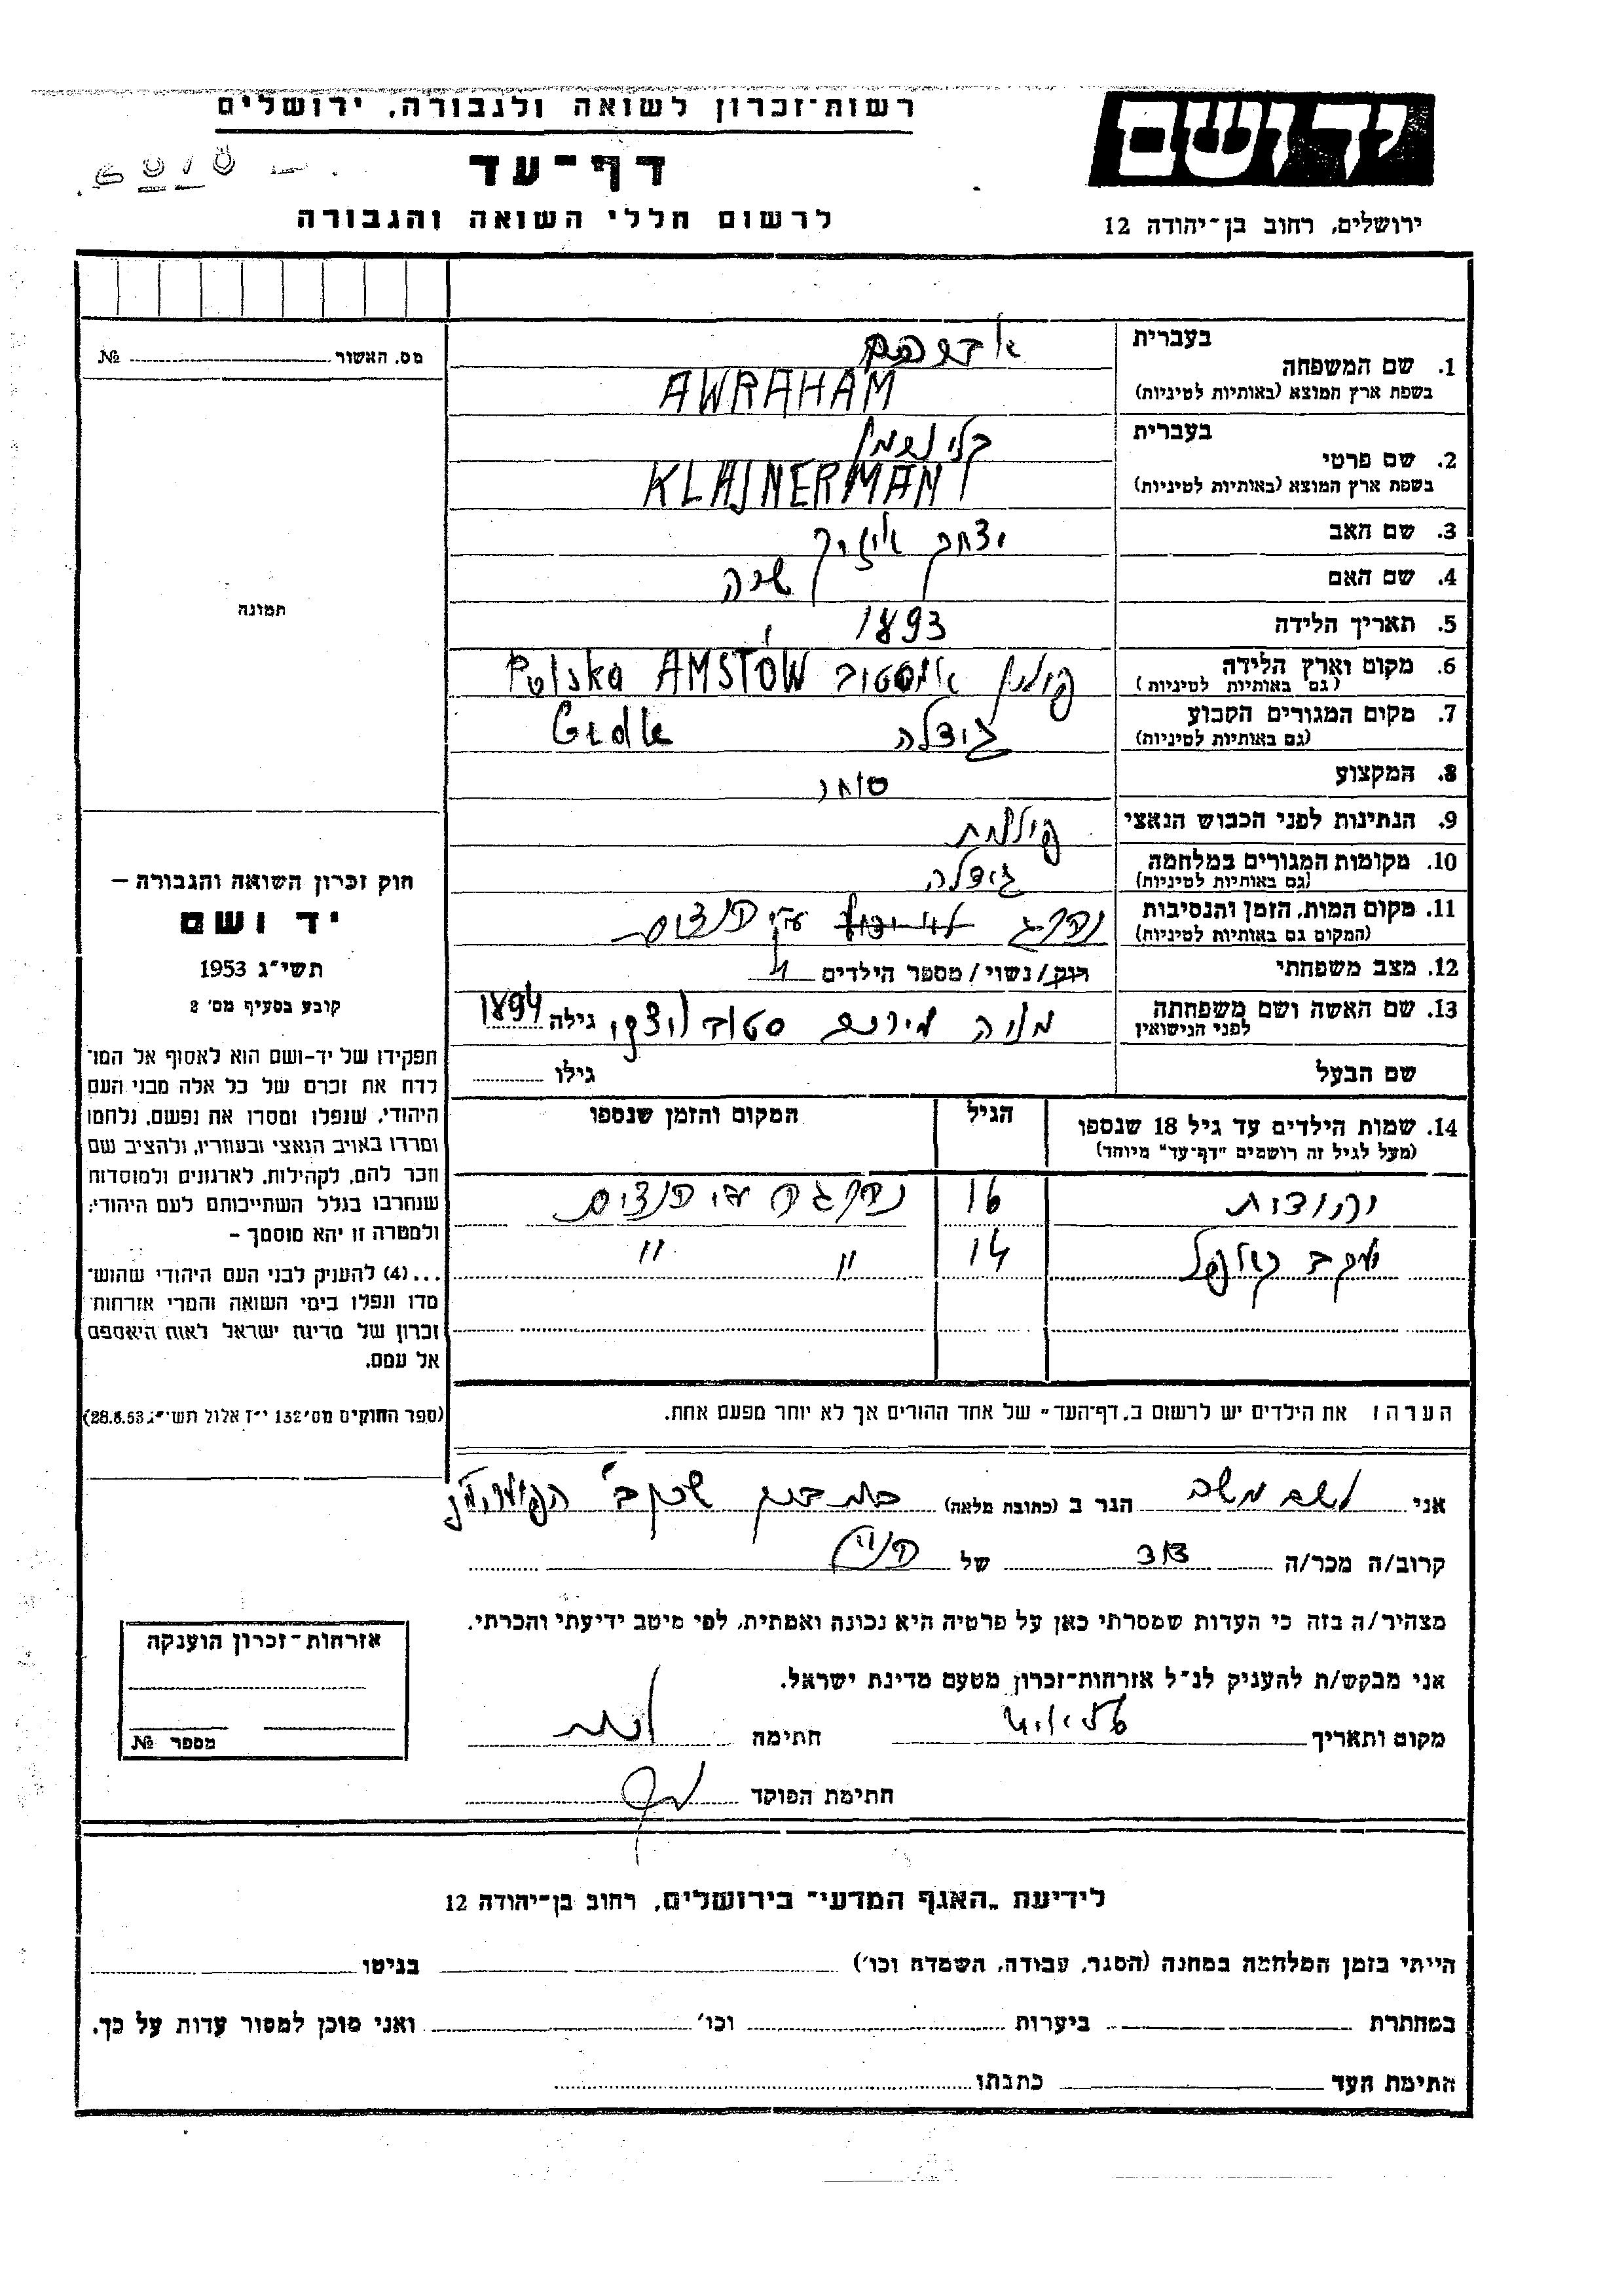 רשות־זכרון לשואה ולגבורה, ירושלים
יד ושם
דף־עד
לרשום חללי השואה והגבורה
ירושלים, רחוב בן־יהודה 12
מס. האשור № 
בעברית אברהם
1. שם המשפחה
בשפת ארץ המוצא (באותיות לטיניות) AWRAHAM
בעברית
2. שם פרטי
בשפת ארץ המוצא (באותיות לטיניות) KLAJNERMAN
3. שם האב יצחק אייזיק
4. שם האם שרה
5. תאריך הלידה 1893
6. מקום וארץ הלידה פולין אמסטוב AMSTÓW Polska
(גם באותיות לטיניות)
7. מקום המגורים הקבוע גידלה Gidle
(גם באותיות לטיניות)
8. המקצוע סוחר
9. הנתינות לפני הכבוש הנאצי פולנית
10. מקומות המגורים במלחמה גידלה
(גם באותיות לטיניות)
11. מקום המות, הזמן והנסיבות נהרג ע״י הנאצים
(המקום גם באותיות לטיניות)
12. מצב משפחתי רוק/נשוי/מספר הילדים 4
13. שם האשה ושם משפחתה
לפני הנישואין מניה מירים גילה 1894
שם הבעל גילו
14. שמות הילדים עד גיל 18 שנספו הגיל המקום והזמן שנספו
(מעל לגיל זה רושמים "דף־עד" מיוחד)
יהודית 16 נהרגה ע״י הנאצים
יעקב 14 " "
הערה: את הילדים יש לרשום ב„דף־העד" של אחד ההורים אך לא יותר מפעם אחת.
תמונה
חוק זכרון השואה והגבורה —
יד ושם
תשי״ג 1953
קובע בסעיף מס׳ 2
תפקידו של יד־ושם הוא לאסוף אל המו־
לדת את זכרם של כל אלה מבני העם
היהודי, שנפלו ומסרו את נפשם, נלחמו
ומרדו באויב הנאצי ובעוזריו, ולהציב שם
וזכר להם, לקהילות, לארגונים ולמוסדות
שנחרבו בגלל השתייכותם לעם היהודי;
ולמטרה זו יהא מוסמך –
...(4) להעניק לבני העם היהודי שהוש־
מדו ונפלו בימי השואה והמרי אזרחות־
זכרון של מדינת ישראל לאות היאספם
אל עמם.
(ספר החוקים מס׳ 132 י״ז אלול תשי״ג 28.8.53)
אני הגר ב (כתובת מלאה)
קרוב/ה מכר/ה של
מצהיר/ה בזה כי העדות שמסרתי כאן על פרטיה היא נכונה ואמתית, לפי מיטב ידיעתי והכרתי.
אני מבקש/ת להעניק לנ״ל אזרחות־זכרון מטעם מדינת ישראל.
מקום ותאריך חתימה
חתימת הפוקד
אזרחות־זכרון הוענקה
מספר №
לידיעת „האגף המדעי" בירושלים, רחוב בן־יהודה 12
הייתי בזמן המלחמה במחנה (הסגר, עבודה, השמדה וכו׳) בגיטו
במחתרת ביערות וכו׳ ואני מוכן למסור עדות על כך.
חתימת העד כתבתו